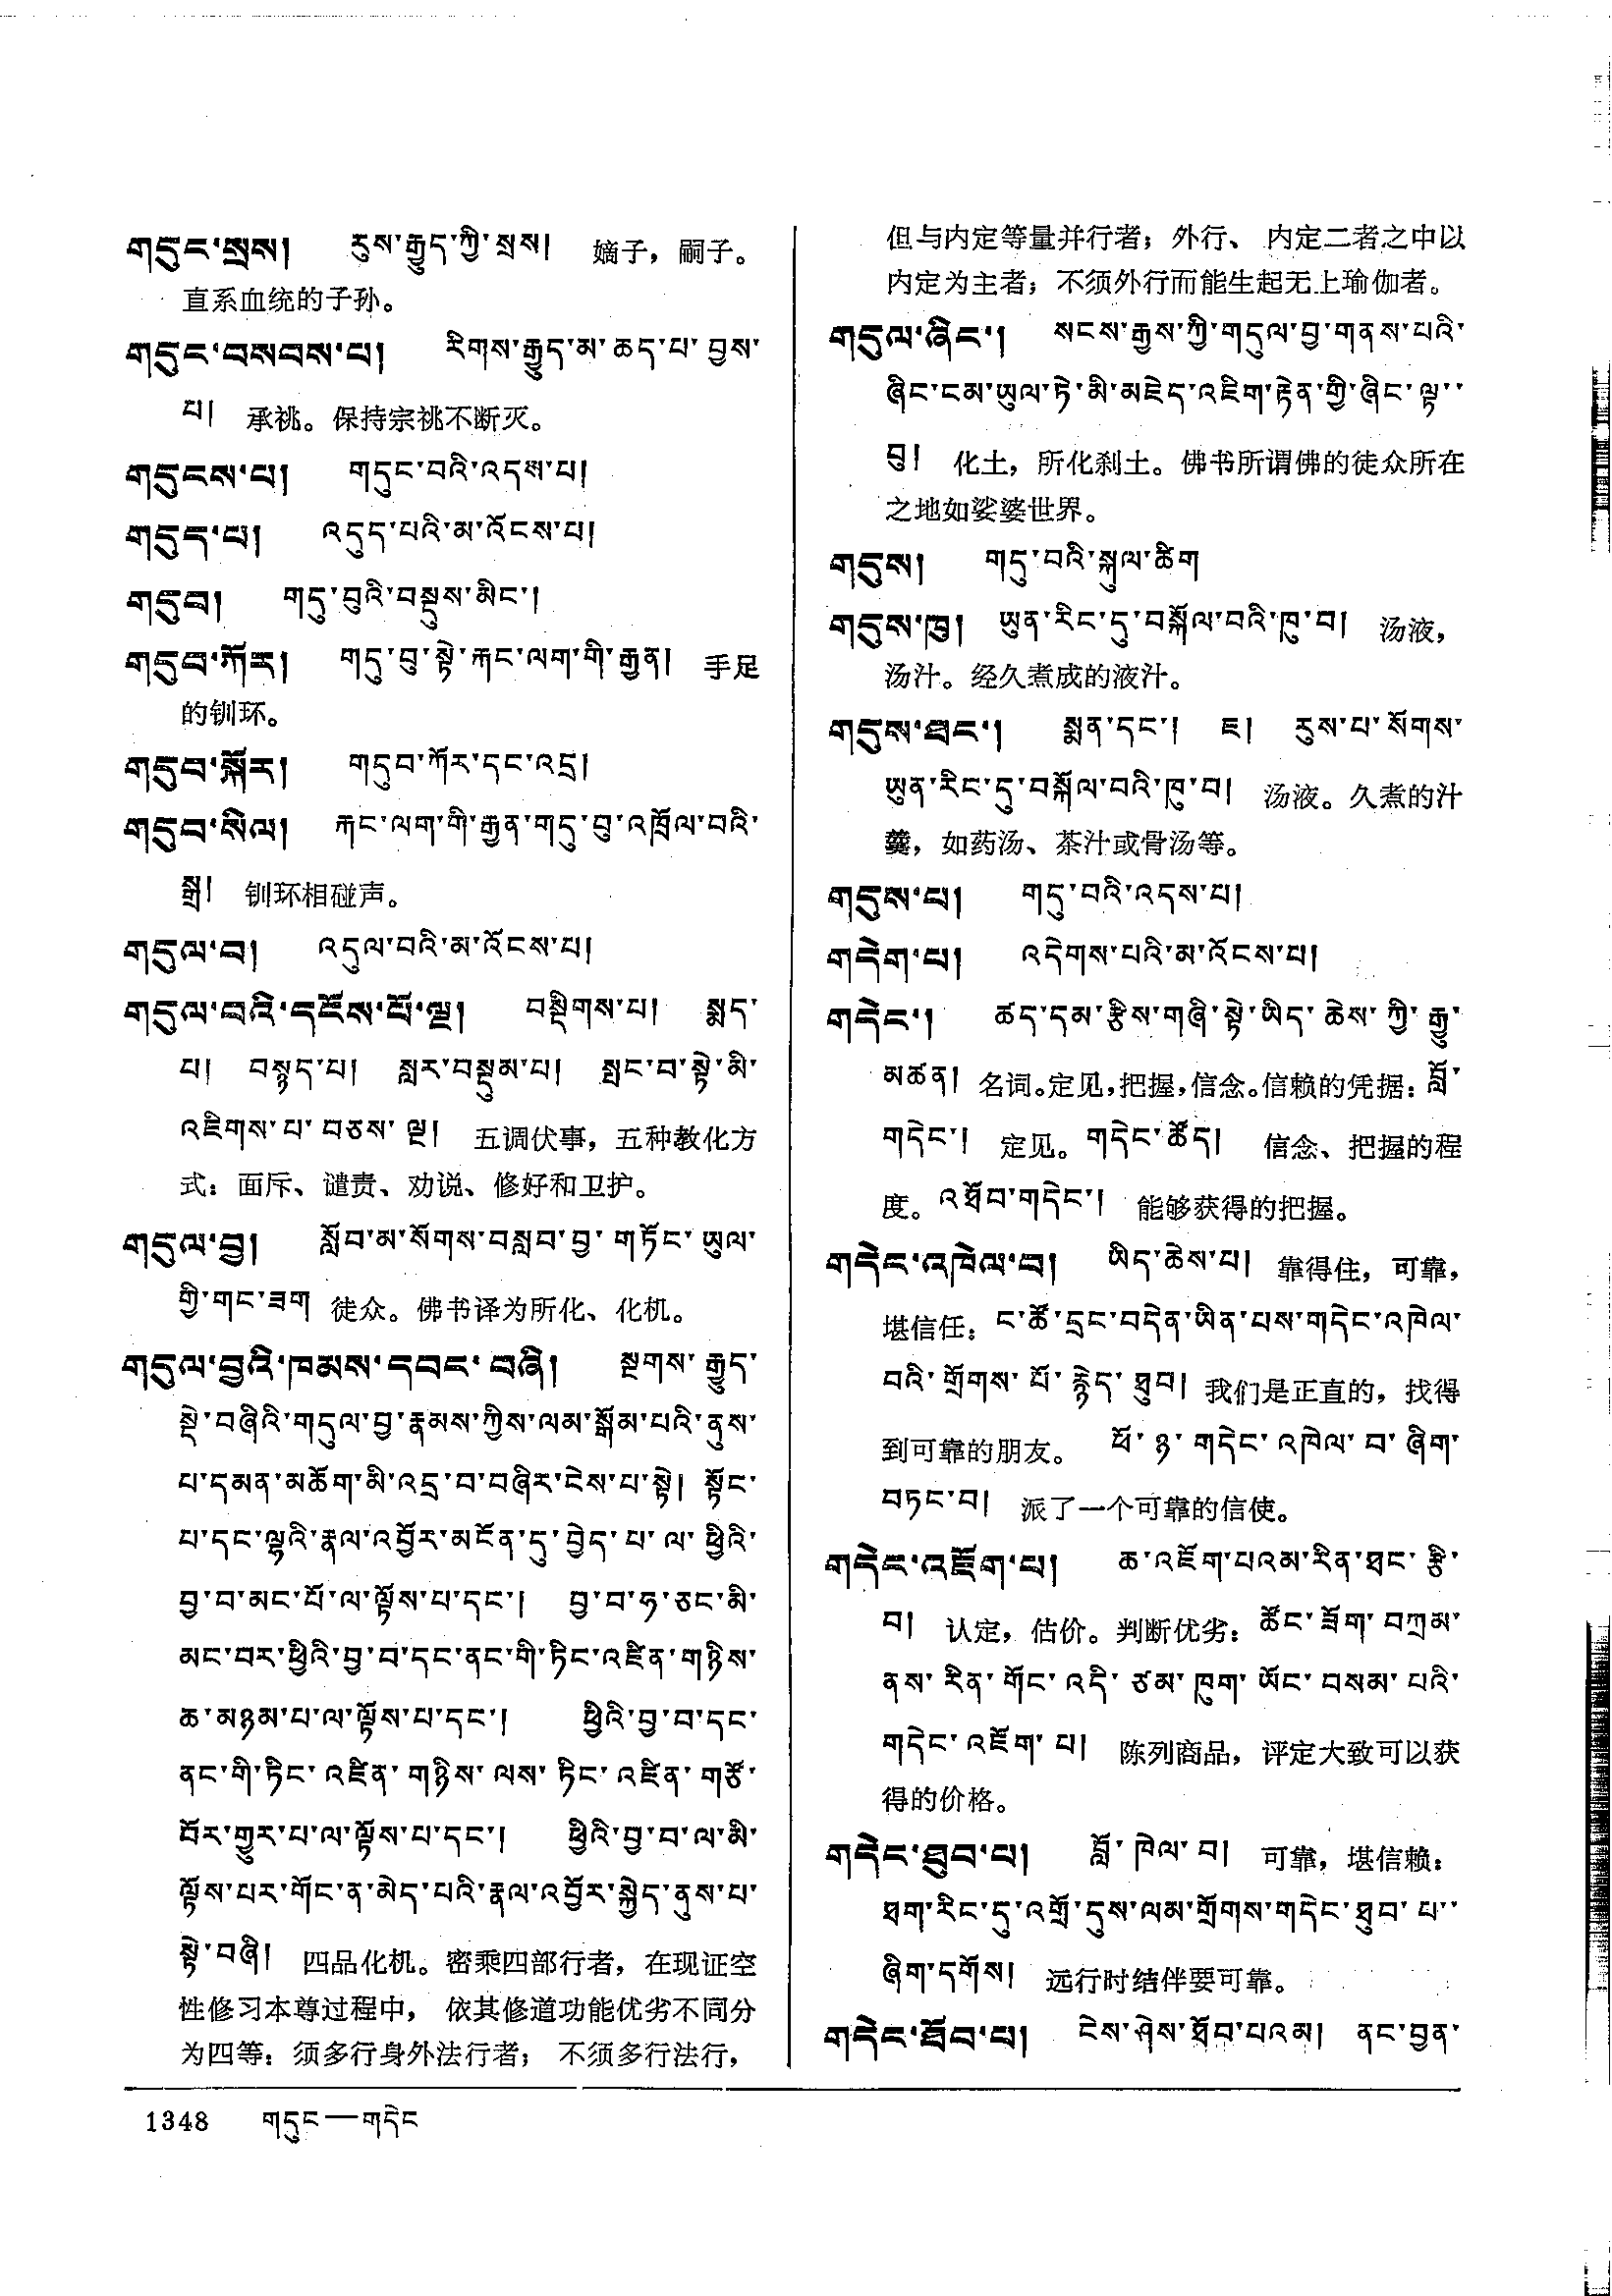 གདུང་སྲས། རུས་རྒྱུད་ཀྱི་སྲས། 嫡子，嗣子。
直系血统的子孙。
གདུང་བསབས་པ། རིགས་རྒྱུད་མ་ཆད་པ་བྱས་
པ། 承祧。保持宗祧不断灭。
གདུངས་པ། གདུང་བའི་འདས་པ།
གདུད་པ། འདུད་པའི་མ་འོངས་པ།
གདུབ། གདུ་བུའི་བསྡུས་མིང་།
གདུབ་ཀོར། གདུ་བུ་སྟེ་རྐང་ལག་གི་རྒྱན། 手足
的钏环。
གདུབ་སྐོར། གདུབ་ཀོར་དང་འདྲ།
གདུབ་སིལ། རྐང་ལག་གི་རྒྱན་གདུ་བུ་འཁྲོལ་བའི་
སྒྲ། 钏环相碰声。
གདུལ་བ། འདུལ་བའི་མ་འོངས་པ།
གདུལ་བའི་དངོས་པོ་ལྔ། བསྡིགས་པ། སྨད་
པ། བསྟད་པ། སླར་བསྡུམ་པ། སྲུང་བ་སྟེ་མི་
འཇིགས་པ་བཅས་ལྔ། 五调伏事，五种教化方
式：面斥、谴责、劝说、修好和卫护。
གདུལ་བྱ། སློབ་མ་སོགས་བསླབ་བྱ་གཏོང་ཡུལ་
གྱི་གང་ཟག 徒众。佛书译为所化、化机。
གདུལ་བྱའི་ཁམས་དབང་བཞི། སྔགས་རྒྱུད་
སྡེ་བཞིའི་གདུལ་བྱ་རྣམས་ཀྱིས་ལམ་སྒོམ་པའི་ནུས་
པ་དམན་མཆོག་མི་འདྲ་བ་བཞིར་ངེས་པ་སྟེ། སྟོང་
པ་དང་ལྷའི་རྣལ་འབྱོར་མངོན་དུ་བྱེད་པ་ལ་ཕྱིའི་
བྱ་བ་མང་པོ་ལ་ལྟོས་པ་དང་། བྱ་བ་ཧ་ཅང་མི་
མང་བར་ཕྱིའི་བྱ་བ་དང་ནང་གི་ཏིང་འཛིན་གཉིས་
ཆ་མཉམ་པ་ལ་ལྟོས་པ་དང་། ཕྱིའི་བྱ་བ་དང་
ནང་གི་ཏིང་འཛིན་གཉིས་ལས་ཏིང་འཛིན་གཙོ་
བོར་གྱུར་པ་ལ་ལྟོས་པ་དང་། ཕྱིའི་བྱ་བ་ལ་མི་
ལྟོས་པར་གོང་ན་མེད་པའི་རྣལ་འབྱོར་སྐྱེད་ནུས་པ་
སྟེ་བཞི། 四品化机。密乘四部行者，在现证空
性修习本尊过程中，依其修道功能优劣不同分
为四等：须多行身外法行者；不须多行法行，
但与内定等量并行者；外行、内定二者之中以
内定为主者；不须外行而能生起无上瑜伽者。
གདུལ་ཞིང་། སངས་རྒྱས་ཀྱི་གདུལ་བྱ་གནས་པའི་
ཞིང་ངམ་ཡུལ་ཏེ་མི་མཇེད་འཇིག་རྟེན་གྱི་ཞིང་ལྟ་་
བུ། 化土，所化刹土。佛书所谓佛的徒众所在
之地如娑婆世界。
གདུས། གདུ་བའི་སྐུལ་ཚིག
གདུས་ཁུ། ཡུན་རིང་དུ་བསྐོལ་བའི་ཁུ་བ། 汤液，
汤汁。经久煮成的液汁。
གདུས་ཐང་། སྨན་དང་། ཇ། རུས་པ་སོགས་
ཡུན་རིང་དུ་བསྐོལ་བའི་ཁུ་བ། 汤液。久煮的汁
羹，如药汤、茶汁或骨汤等。
གདུས་པ། གདུ་བའི་འདས་པ།
གདེག་པ། འདེགས་པའི་མ་འོངས་པ།
གདེང་། ཚད་དམ་རྩིས་གཞི་སྟེ་ཡིད་ཆེས་ཀྱི་རྒྱུ་
མཚན། 名词。定见，把握，信念。信赖的凭据：བློ་
གདེང་། 定见。གདེང་ཚོད། 信念、把握的程
度。འཐོབ་གདེང་། 能够获得的把握。
གདེང་འཁེལ་བ། ཡིད་ཆེས་པ། 靠得住，可靠，
堪信任：ང་ཚོ་དྲང་བདེན་ཡིན་པས་གདེང་འཁེལ་
བའི་གྲོགས་པོ་རྙེད་ཐུབ། 我们是正直的，找得
到可靠的朋友。 ཕོ་ཉ་གདེང་འཁེལ་བ་ཞིག་
བཏང་བ། 派了一个可靠的信使。
གདེང་འཇོག་པ། ཆ་འཇོག་པའམ་རིན་ཐང་རྩི་
བ། 认定，估价。判断优劣：ཚོང་ཟོག་བཀྲམ་
ནས་རིན་གོང་འདི་ཙམ་ཁུག་ཡོང་བསམ་པའི་
གདེང་འཇོག་པ། 陈列商品，评定大致可以获
得的价格。
གདེང་ཐུབ་པ། བློ་ཁེལ་བ། 可靠，堪信赖：
ཐག་རིང་དུ་འགྲོ་དུས་ལམ་གྲོགས་གདེང་ཐུབ་པ་་
ཞིག་དགོས། 远行时结伴要可靠。
གདེང་ཐོབ་པ། ངེས་ཤེས་ཐོབ་པའམ། ནང་བྱན་
1348 གདུང—གདེང